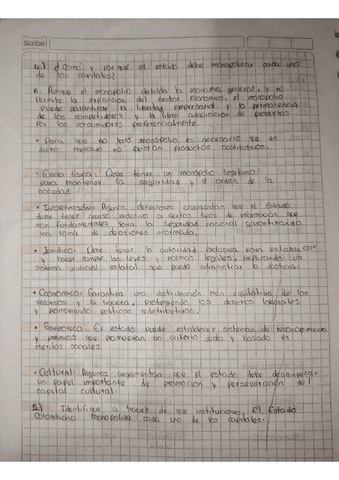 Scribe
4.) ¿Como y por qué el estado debe monopolizar cada uno
de los capitales?
R: Aunque el monopolio debilita la economia general, y no
permite la expansion del sector economico, el monopolio
puede garantizar la libertad empresarial y la permanencia
de los competidores y la libre adquisicion de productos
por los consumidores preferencialmente.
• Para que no haya monopolio es necesario que en
dicho mercado no existan productos sustitutivos.
• Fuerza fisica: Debe tener un monopolio legitimo
para mantener la seguridad y el orden de la
sociedad
• Informacion: Algunos defensores argumentan que el Estado
debe tener acceso exclusivo a ciertos tipos de informacion que
son fundamentales para la seguridad nacional garantizando
una toma de decisiones informada.
• Juridico: Debe tener la autoridad exclusiva para establecer
y hacer cumplir las leyes y normas legales, asegurando un
sistema judicial estatal que pueda administrar la justicia.
• Economico: Garantiza una distribución más equitativa de los
recursos y la riqueza, protegiendo los derechos laborales
y promoviendo politicas redistributivas.
• Simbolico: El estado puede establecer sistemas de reconocimiento
y premios que promuevan un criterio justo y basado en
meritos sociales
• Cultural: Algunos argumentan que el estado debe desempeñar
un papel importante de promocion y preservación del
capital cultural.
5.) Identifique a traves de que instituciones, El Estado
Colombiano monopoliza cada uno de los capitales.